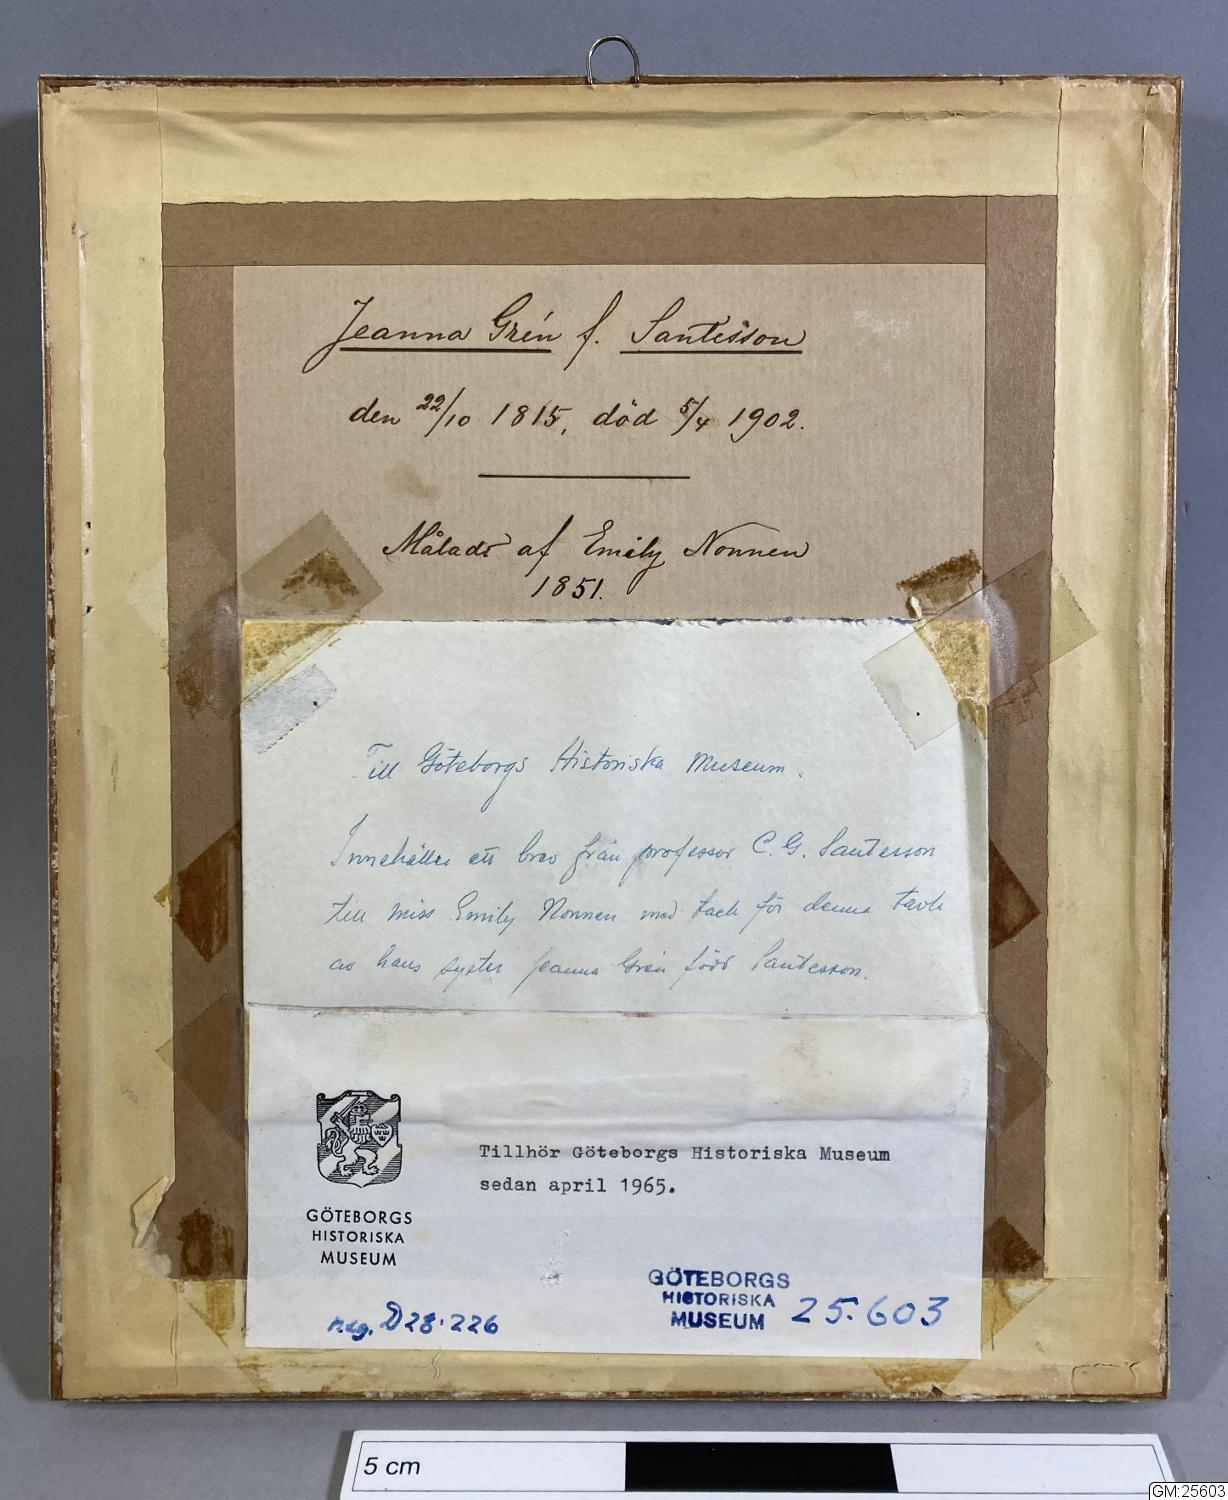 Jeanna Grén f. Santesson
den 22/10 1815, död 5/4 1902.
Måladt af Emily Nonnen
1851.
Till Göteborgs Historiska Museum.
Innehåller ett brev från professor C. G. Santesson
till miss Emily Nonnen med tack för denna tavla
av hans syster Jeanna Grén född Santesson.
GÖTEBORGS
HISTORISKA
MUSEUM
Tillhör Göteborgs Historiska Museum
sedan april 1965.
GÖTEBORGS
HISTORISKA
MUSEUM
25.603
neg. D28.226
5 cm
GM:25603